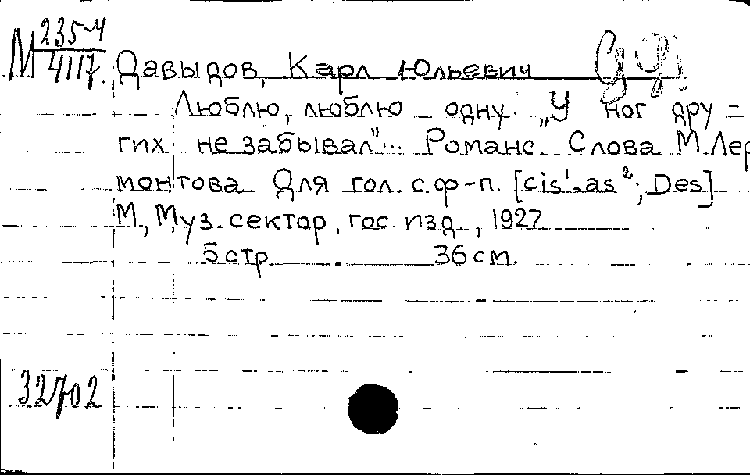 М 235-4
4117.
Давыдов, Карл Юльевич
Люблю, люблю одну. „У ног дру=
гих не забывал"... Романс. Слова М. Лер
монтова Для гол. с ф-п. [cis¹-as²; Des]
М., Муз. сектор, гос. изд., 1927
5 стр 36 см.
32702